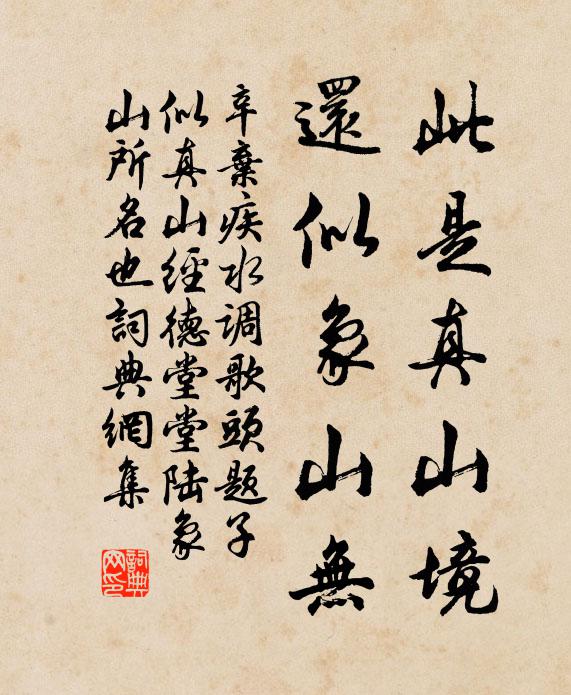 此是真山境
還似象山無
辛棄疾水调歌頭题子
似真山經德堂堂陆象
山所名也詞典網集
詞典
网印